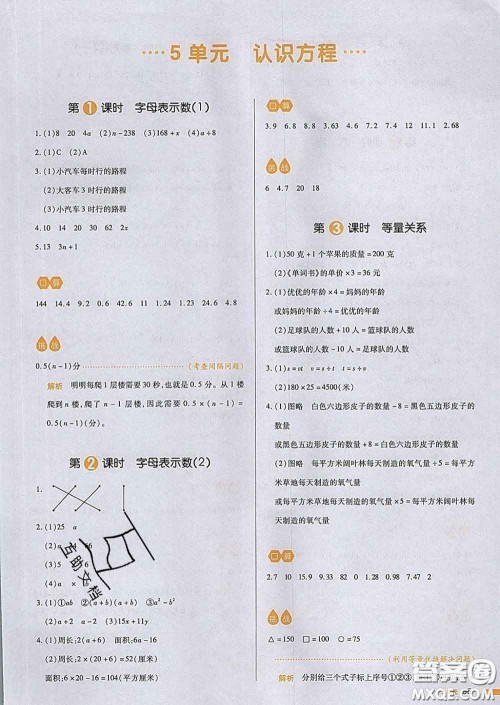 5 单元 认识方程
第 1 课时 字母表示数(1)
1.(1)8 20 4a (2)n-238 (3)168+x (4)a÷8
2.(1)C (2)A
3.(1)小汽车每时行的路程
(2)大客车3时行的路程
(3)小汽车3时行的路程
4.10 14 20 30 62 2x
5.13 3n+1
口算
144 14.4 9 0.6 42.6 11 1.24 9.3 24.6 4.8
挑战
0.5(n-1)分 (考查间隔问题)
解析 明明每爬1层楼需要30秒,也就是0.5分。从1楼
爬到n楼,爬了n-1层楼,因此需要0.5×(n-1)=
0.5(n-1)(分)。
第 2 课时 字母表示数(2)
1.
2.(1)25 a
(2)a
3.(1)①ab ②(a+b) (a+b) ③a²-b²
(2)a+12 a-15 a²
4.(1)周长:2(a+6) 面积:6a-16
(2)周长:2×(20+6)=52(米)
面积:6×20-16=104(平方厘米)
口算
3.9 6.8 8.8 1.64 3.6 7.4 12 11.1 2.68
挑战
6 4.7 20 18
第 3 课时 等量关系
1.(1)50克+1个苹果的质量=200克
(2)《单词书》的单价×3=36元
2.(1)优优的年龄×4=妈妈的年龄
或妈妈的年龄÷4=优优的年龄
(2)足球队的人数-10人=篮球队的人数
或篮球队的人数+10人=足球队的人数
3.(1)s=vt v=s÷t t=s÷v
(2)180×25=4500(米)
4.(1)图略 白色六边形皮子的数量-8=黑色五边形皮子的
数量
或黑色五边形皮子的数量+8=白色六边形皮子的数量
(2)图略 每平方米阔叶林每天制造的氧气量÷5=每平方
米草地每天制造的氧气量
或每平方米草地每天制造的氧气量×5=每平方米阔叶林每
天制造的氧气量
口算
2.7 10 15.2 9.38 82 0 1.28 0.98 7.47 2
挑战
△=150 □=100 ○=75
(利用等量代换解决问题)
解析 分别给三个式子标上序号①②③
互助文档
答案圈
MXQE.COM